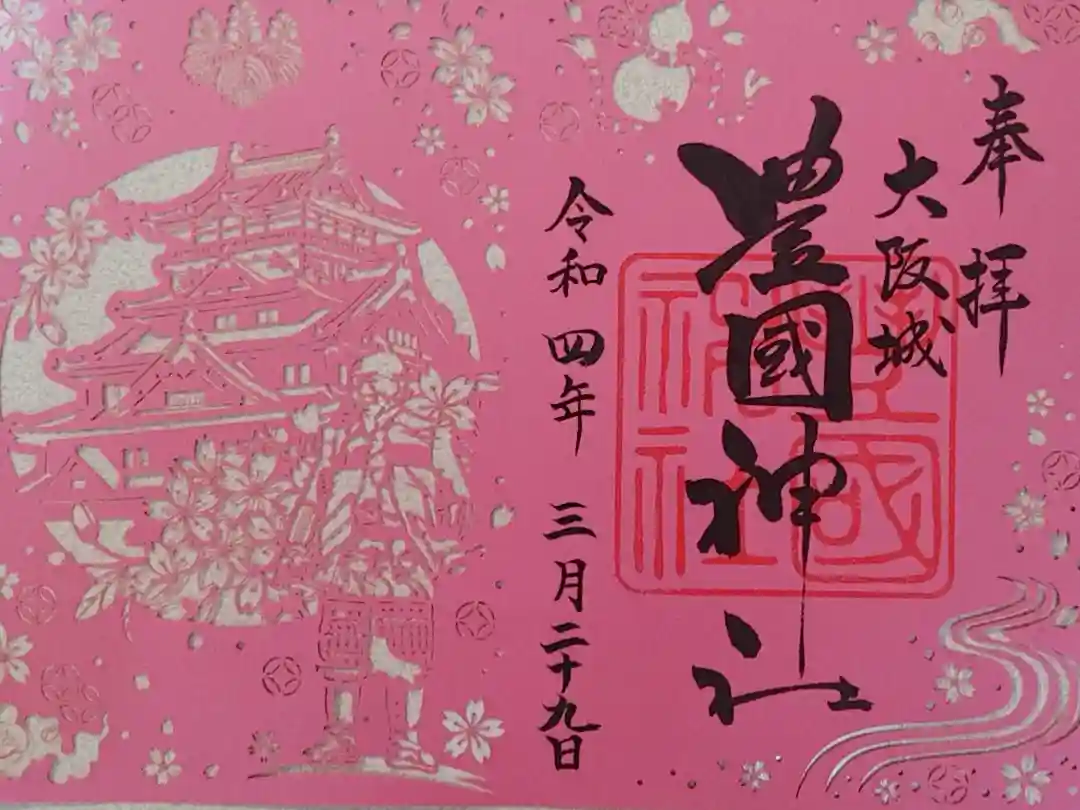 奉拝
大阪城
豊國神社
豊國神社
令和四年三月二十九日